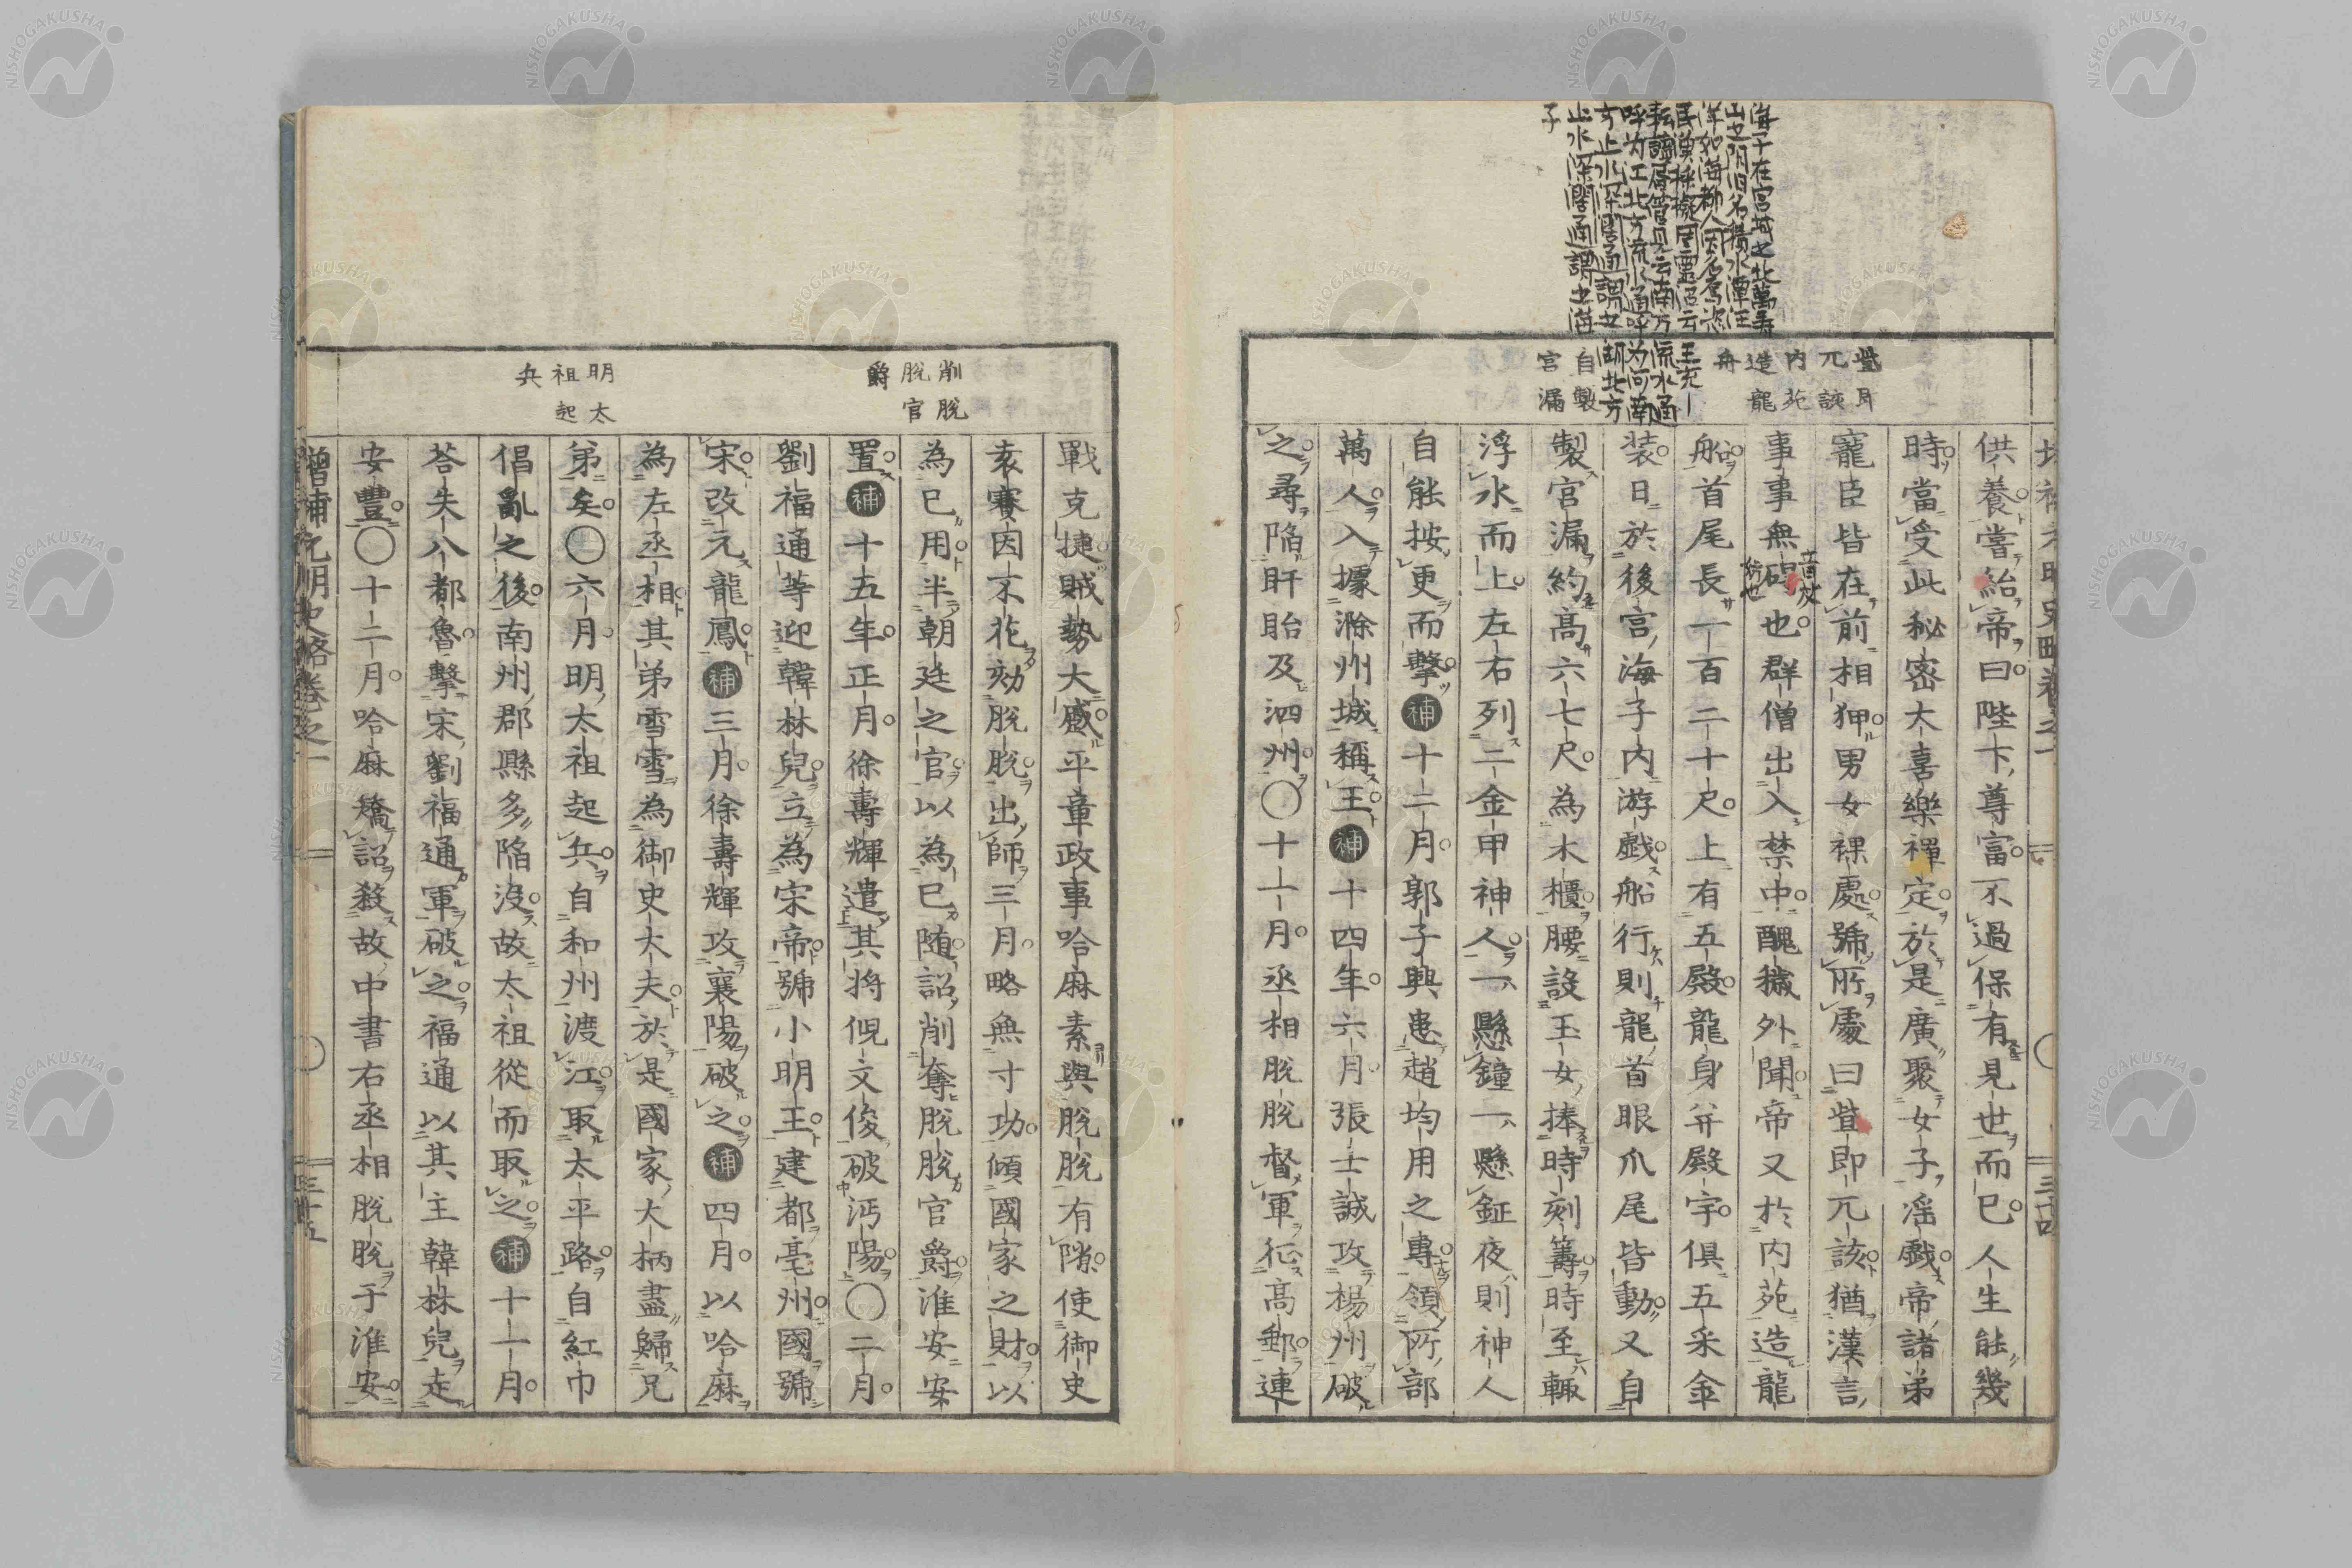 海子在宮城之北萬壽
山之陰旧名積水潭汪
洋如海都人因名焉恣
民漁採擬周靈沼云
呼為江北方流水通呼為河南
方止水深闊通謂之湖北方
止水深闊通謂之海
子
㫮即
兀該
内苑
造龍
舟
自製
宮漏
供養嘗紿帝曰陛下尊富不過保有見世而已人生能幾
時當受此秘密大喜樂禪定於是廣聚女子滛戲帝諸弟
寵臣皆在前相狎男女裸處號所處曰㫮即兀該猶漢言
事事無碍也群僧出入禁中醜穢外聞帝又於内苑造龍
船首尾長一百二十尺上有五殿龍身并殿宇俱五采金
装日於後宮海子内游戲船行則龍首眼爪尾皆動又自
製宮漏約高六七尺為木櫃腰設玉女捧時刻籌時至輙
浮水而上左右列二金甲神人一懸鐘一懸鉦夜則神人
自能按更而擊補十二月郭子興惠趙均用之專領所部
萬人入據滁州城稱王補十四年六月張士誠攻楊州破
之尋陷盱眙及泗州〇十一月丞相脫脫督軍征高郵連
削脫
脫官
爵
明太
祖起
兵
戰克捷賊勢大蹙平章政事哈麻素與脫脫有隙使御史
袁賽因不花劾脫脫出師三月略無寸功傾國家之財以
為己用半朝廷之官以為己随詔削奪脫脫官爵淮安安
置補十五年正月徐壽輝遣其将倪文俊破沔陽〇二月
劉福通等迎韓林兒立為宋帝號小明王建都亳州國號
宋改元龍鳳補三月徐壽輝攻襄陽破之補四月以哈麻
為左丞相其弟雪雪為御史大夫於是國家大柄盡歸兄
弟矣〇六月明太祖起兵自和州渡江取太平路自紅巾
倡亂之後南州郡縣多陷没故太祖從而取之補十一月
荅失八都魯擊宋劉福通軍破之福通以其主韓林兒走
安豐〇十二月哈麻矯詔殺故中書右丞相脫脫于淮安
增補元明史略卷之一
三十五